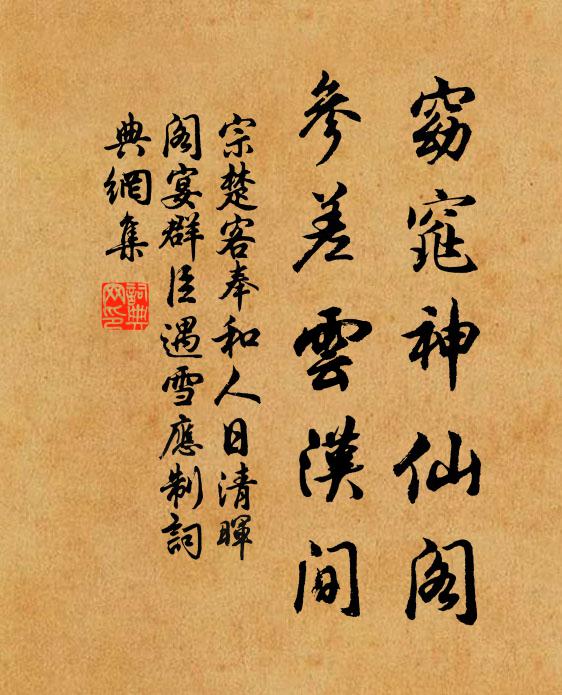 窈窕神仙閣
參差雲漢間
宗楚客奉和人日清暉
閣宴群臣遇雪應制詞
典網集
詞典網印